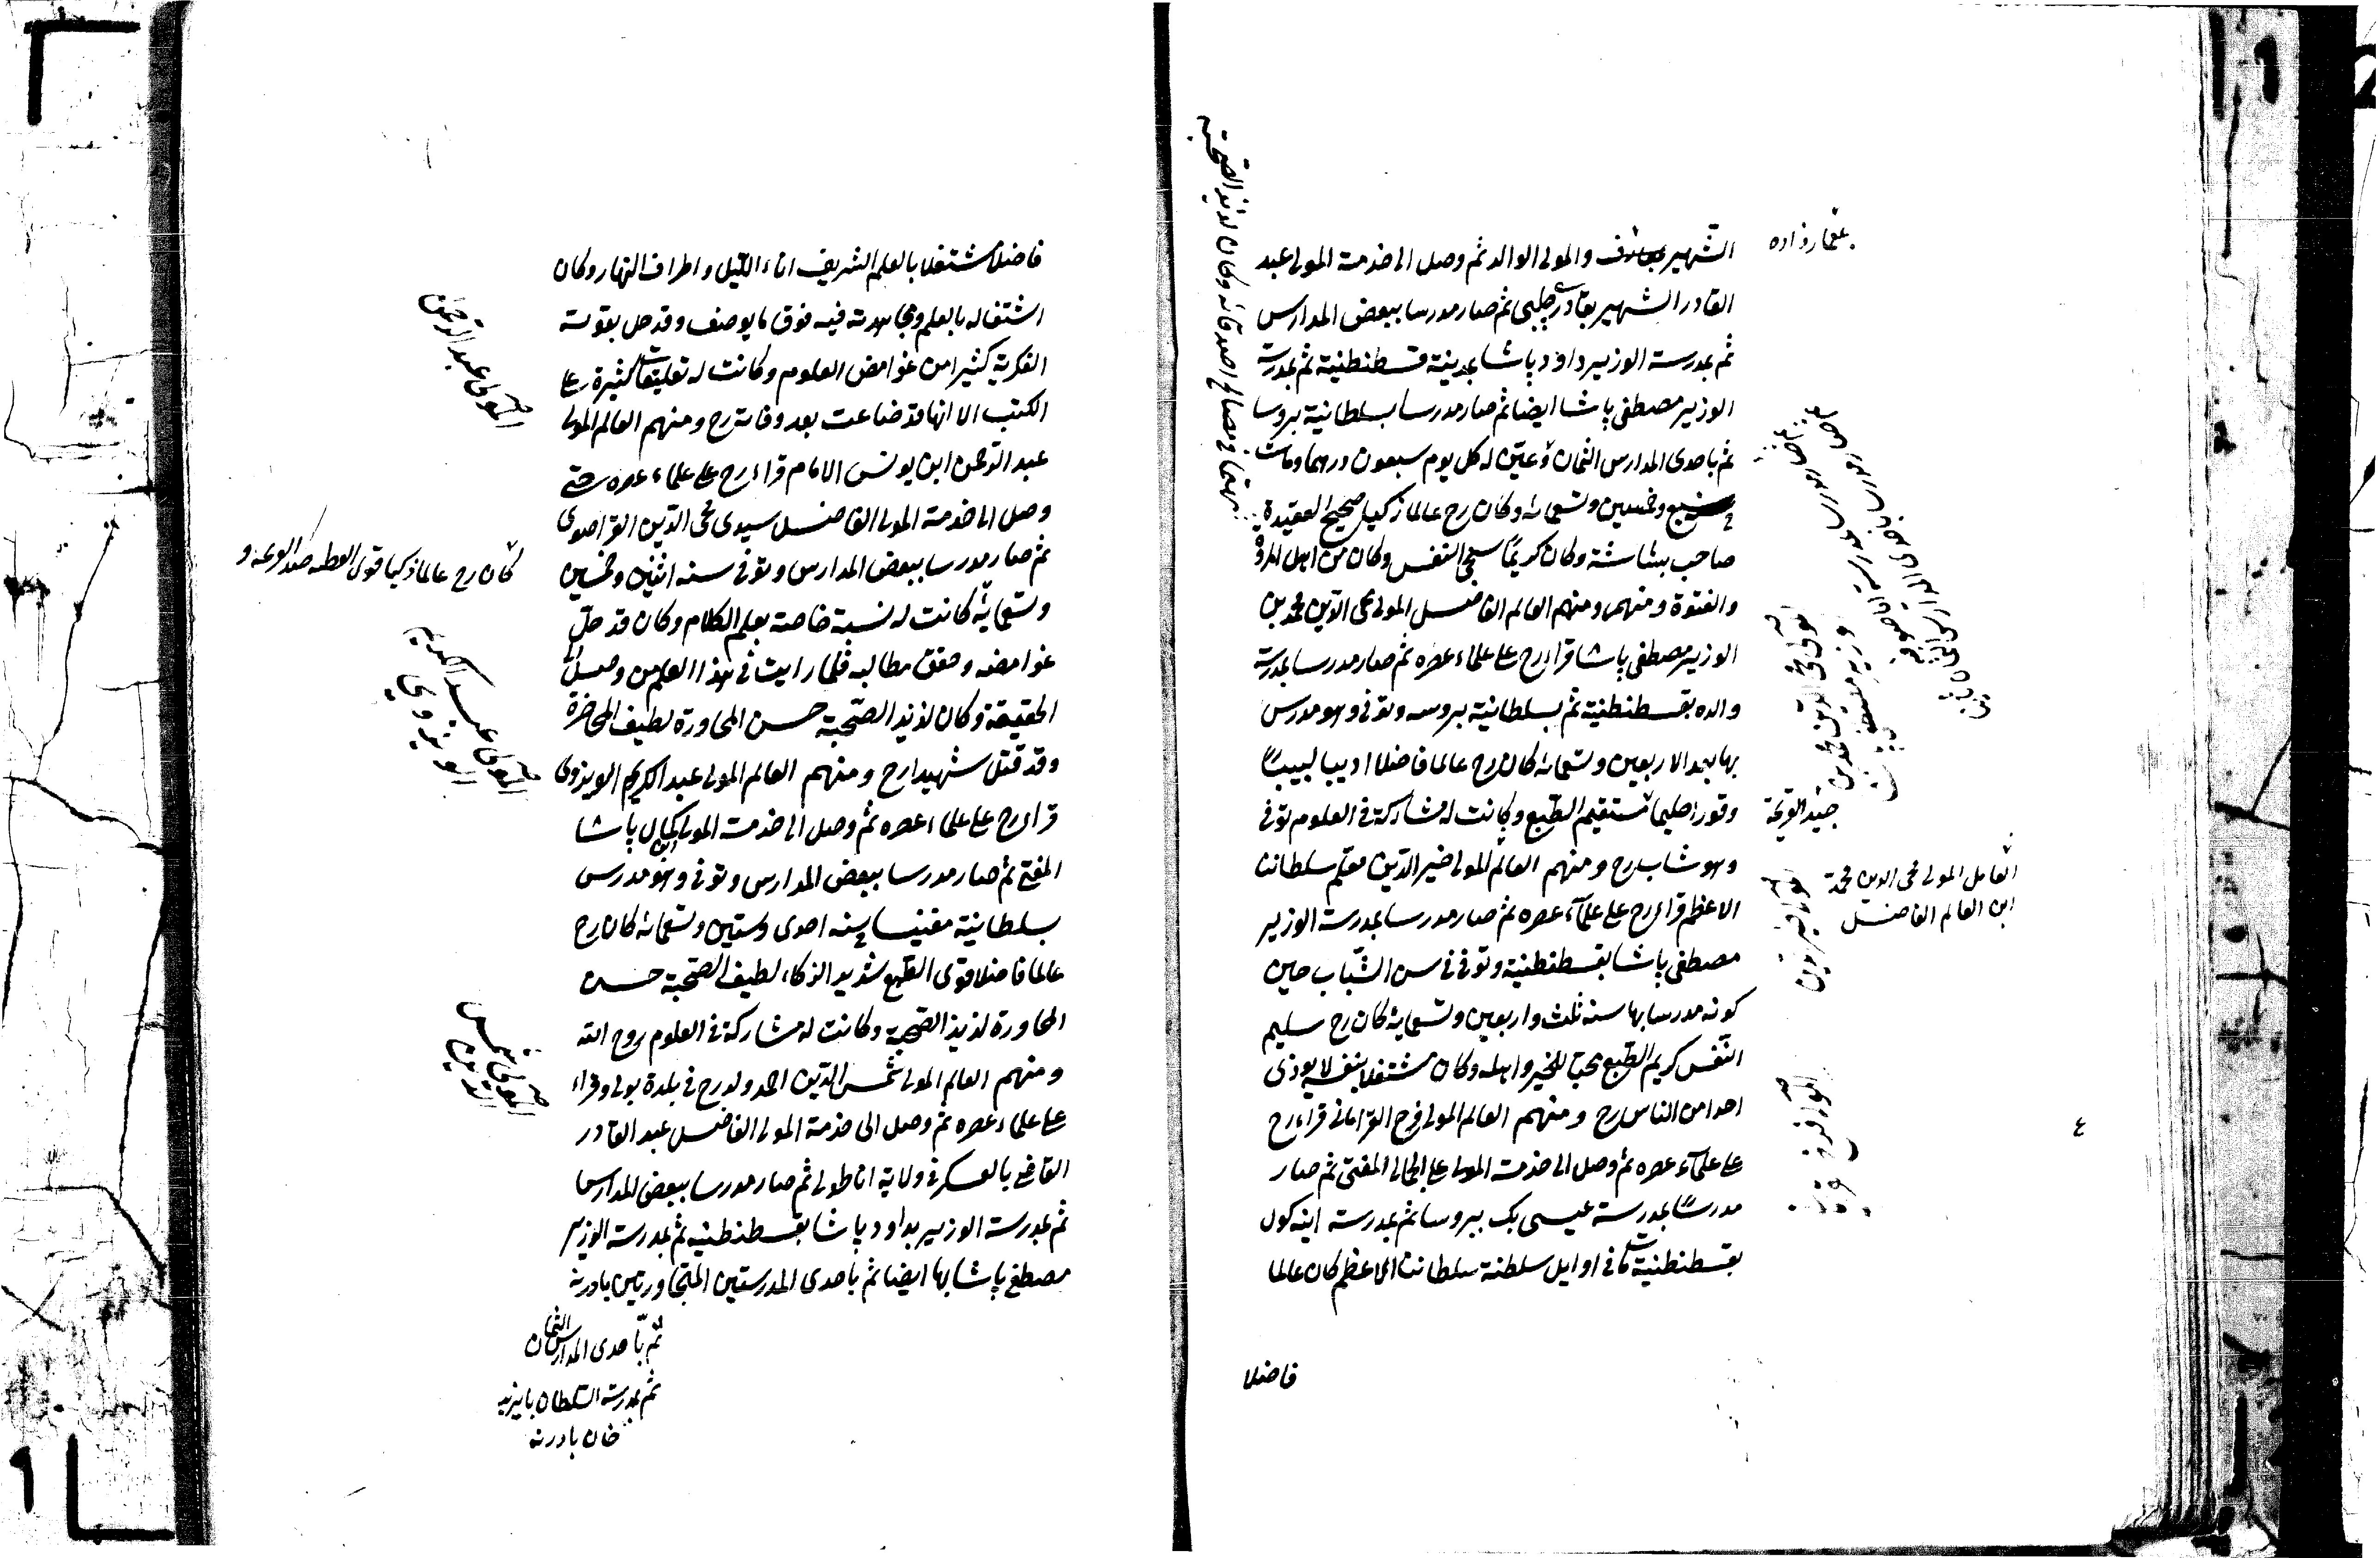 الشهير والمولى الوالد ثم وصل الى خدمة المولى عبد
القادر الشهير بقادري چلبي ثم صار مدرسا ببعض المدارس
ثم بمدرسة الوزير داود باشا بمدينة قسطنطنية ثم بمدرسة
الوزير مصطفى باشا ايضا ثم صار مدرسا بسلطانية بروسا
ثم باحدى المدارس الثمان وعين له كل يوم سبعون درهما ومات
سبع وخمسين وتسعمائة وكان رح عالما زكيا صحيح العقيدة
صاحب بشاشة وكان كريما سخى النفس وكان من اهل المروة
والفتوة ومنهم ومنهم العالم الفاضل المولى محى الدين محمد بن
الوزير مصطفى باشا قراء رح على علماء عصره ثم صار مدرسا بمدرسة
والده بقسطنطنية ثم بسلطانية بروسه وتوفى وهو مدرس
بها بعد الاربعين وتسعمائة كان رح عالما فاضلا اديبا لبيبا
وقورا حليما مستقيم الطبع وكانت له مشاركة في العلوم توفى
وهو شاب رح ومنهم العالم المولى خير الدين معلم سلطاننا
الاعظم قراء رح على علماء عصره ثم صار مدرسا بمدرسة الوزير
مصطفى باشا بقسطنطنية وتوفى في سن الشباب حين
كونه مدرسا بها سنة ثلث واربعين وتسعماية كان رح سليم
النفس كريم الطبع محبا للخير واهله وكان مشتغلا بنفسه لا يوذى
احدا من الناس رح ومنهم العالم المولى فرج القرامانى قراء رح
على علماء عصره ثم وصل الى خدمة المولى على الجمالى المفتى ثم صار
مدرسا بمدرسة عيسى بك ببروسا ثم بمدرسة اينه كول
بقسطنطنية مات في اوايل سلطنة سلطاننا الاعظم كان عالما
فاضلا
جيد القريحة
العامل المولى محى الدين محمد
ابن العالم الفاضل
المولى محى الدين محمد بن
المولى خير الدين
٤
فاضلا مشتغلا بالعلم الشريف اناء الليل واطراف النهار وكان
اشتغاله بالعلم ومجاهدته فيه فوق ما يوصف وقد حل بقوته
الفكرية كثيرا من غوامض العلوم وكانت له تعليقات كثيرة على
الكتب الا انها قد ضاعت بعد وفاته رح ومنهم العالم المولى
عبد الرحمن ابن يونس الامام قراء رح على علماء عصره حتى
وصل الى خدمة المولى الفاضل سيدى محى الدين القراصوى
ثم صار مدرسا ببعض المدارس وتوفى سنه اثنين وخمسين
وتسعماية كانت له نسبة خاصة بعلم الكلام وكان قد حل
غوامضه وحقق مطالبه قلما رايت في هذا العلم من وصل الى
الحقيقة وكان لذيذ الصحبة حسن المحاورة لطيف المحاضرة
وقد قتل شهيدا رح ومنهم العالم المولى عبد الكريم الويزوى
قراء رح على علماء عصره ثم وصل الى خدمت المولى ابن كمال باشا
المفتى ثم صار مدرسا ببعض المدارس وتوفى وهو مدرس
بسلطانية مغنيسا سنه احدى وستين وتسعمائة كان رح
عالما فاضلا قوى الطبع شديد الزكاء لطيف الصحبة حسن
المحاورة لذيذ الصحبة وكانت له مشاركة في العلوم روح الله
ومنهم العالم المولى شمس الدين احمد ولد رح في بلدة بولى وقراء
على علماء عصره ثم وصل الى خدمة المولى الفاضل عبد القادر
القاضى بالعسكر في ولاية اناطولى ثم صار مدرسا ببعض المدارس
ثم بمدرسة الوزير بداود باشا بقسطنطنيه ثم بمدرسة الوزير
مصطفى باشا بها ايضا ثم باحدى المدرستين المتجاورتين بادرنه
ثم باحدى المدارس الثمان
ثم بمدرسة السلطان بايزيد
خان بادرنه
المولى عبد الرحمن
كان رح عالما ذكيا قوى
المولى عبد الكريم
الويزوى
المولى شمس
الدين